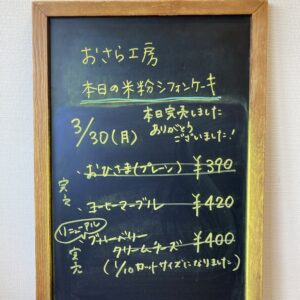 おさら工房
本日の米粉シフォンケーキ
3/30(月)
本日完売しました
ありがとう
ございました!
・おひさま(プレーン) ¥390
完売
・コーヒーマーブル ¥420
リニューアル
・ブルーベリー
クリームチーズ ¥400
完売
(1/10カットサイズになりました)